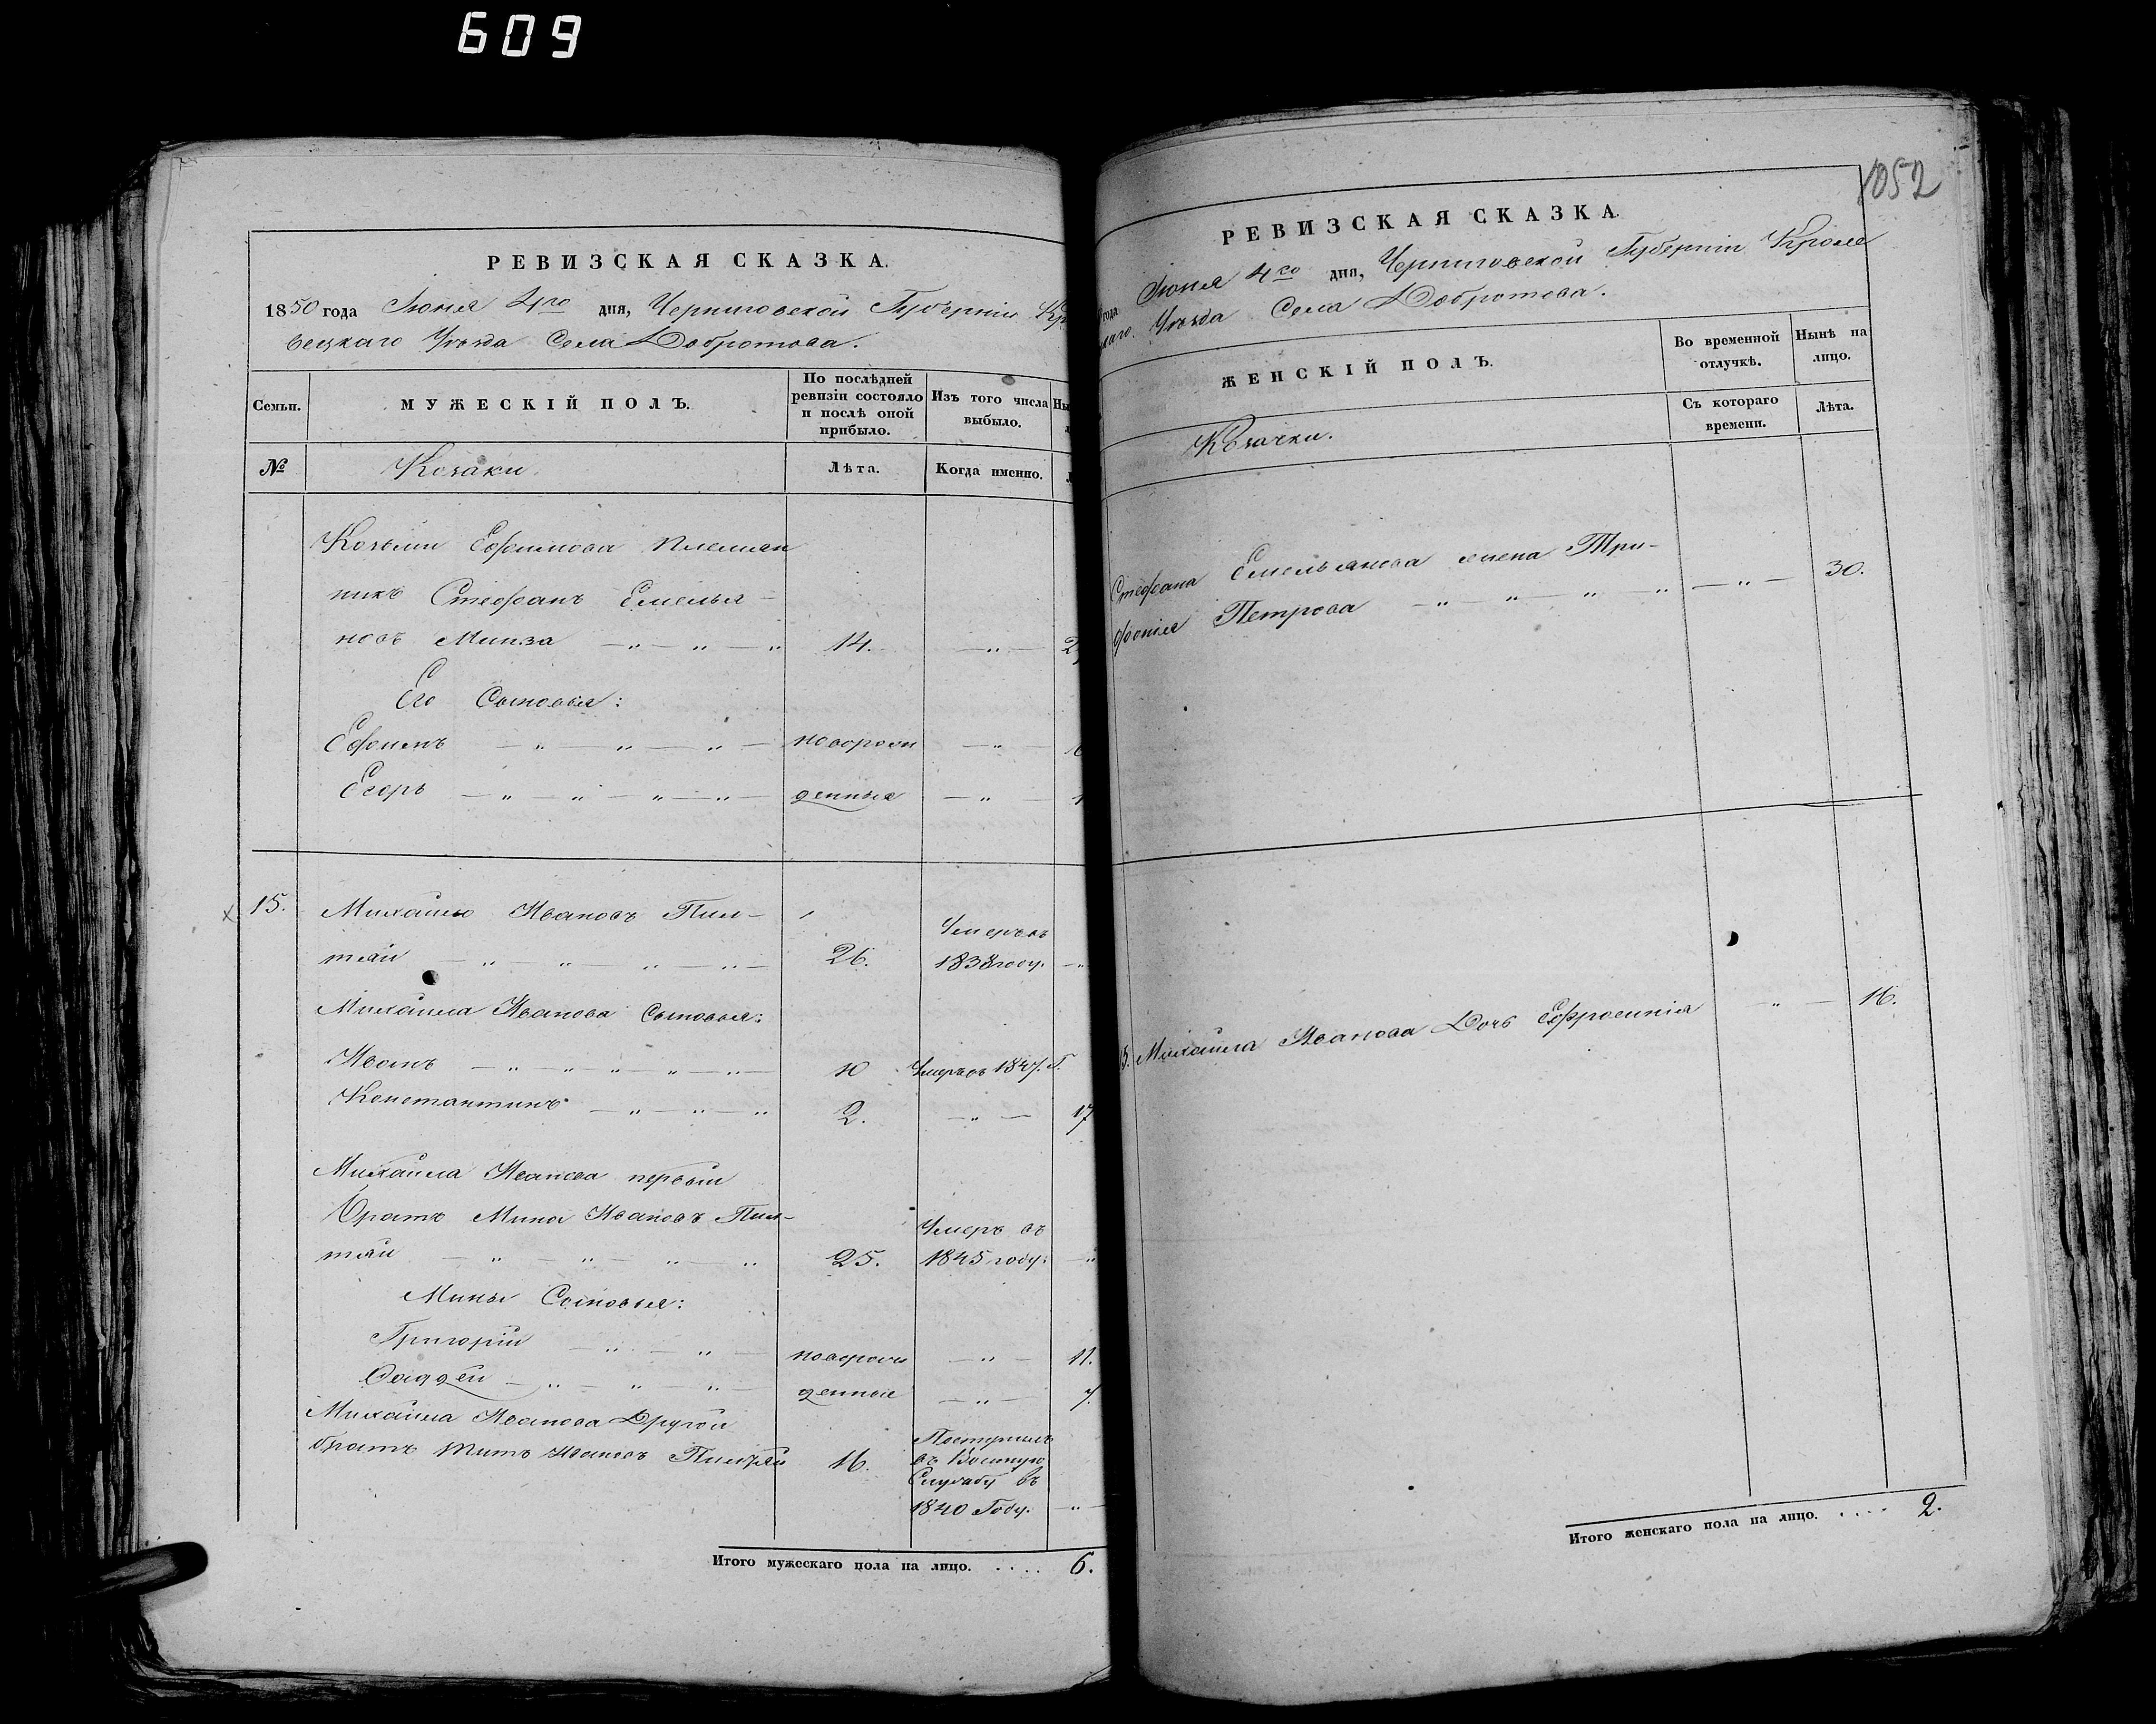 609
РЕВИЗСКАЯ СКАЗКА.
1850 года Іюня 4го дня, Черниговской Губерніи Кр
вецкаго Уѣзда Села Добротова.
Семьи.
МУЖЕСКІЙ ПОЛЪ.
По послѣдней
ревизіи состояло
и послѣ оной
прибыло.
Изъ того числа
выбыло.
№
Козаки.
Лѣта.
Когда именно.
Козьмы Ефимова племян
никъ Стефанъ Емелья-
новъ Минза 14.
Его Сыновья:
Ефимъ новорож
Егоръ денные
15. Михайло Иванов Пил-
тяй 26. Умеръ въ 1838 году.
Михайла Иванова Сыновья:
Иванъ 10 Умеръ въ 1847. Г.
Константинъ 2. 17
Михайла Иванова первый
Братъ Мина Ивановъ Пил-
тяй 25. Умеръ въ 1845 году.
Мины Сыновья:
Григорій новорож 11.
Фаддей денные 7.
Михайла Иванова Другой
братъ Титъ Ивановъ Пилтяй 16. Поступилъ
въ Военную
Службу въ
1840 Году.
Итого мужескаго пола на лицо. .... 6.
1052
РЕВИЗСКАЯ СКАЗКА.
года Іюня 4го дня, Черниговской Губерніи Кроле
Уѣзда Села Добротова.
ЖЕНСКІЙ ПОЛЪ.
Во временной
отлучкѣ.
Нынѣ на
лицо.
Козачки.
Съ котораго
времени.
Лѣта.
Стефана Емельянова жена Три-
фонія Петрова 30.
15. Михайла Иванова Дочь Ефросинія 16.
Итого женскаго пола на лицо. .... 2.